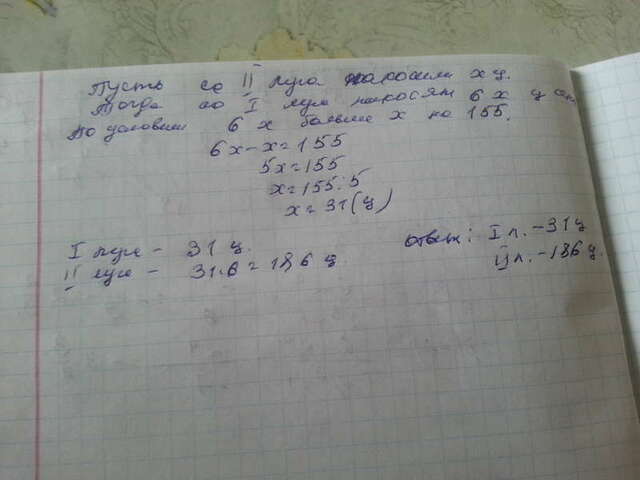 Пусть со II луга накосили x ц.
Тогда со I луга накосят 6x ц
по условию 6x больше x на 155.
6x-x=155
5x=155
x=155:5
x=31(ц)
I луг - 31 ц.
II луг - 31·6=186 ц.
Ответ: I л. -31ц
II л. -186 ц.